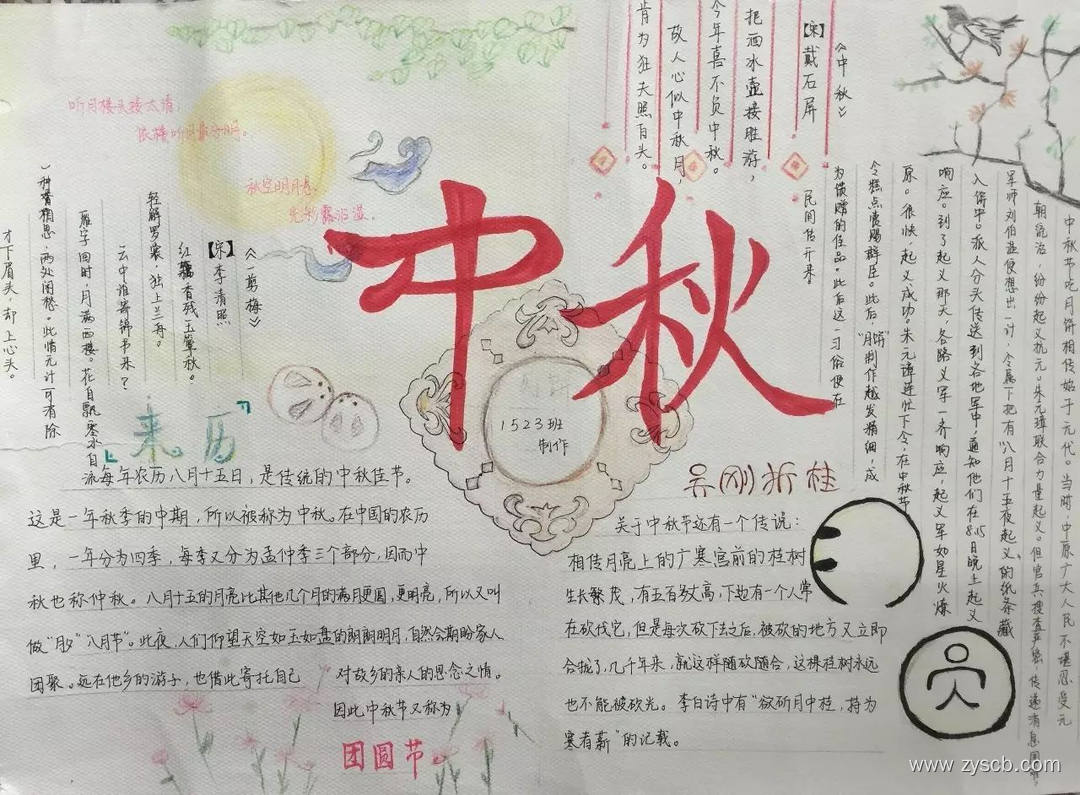 中秋
《中秋》
【宋】戴石屏
把酒冰壶接胜游，
今年喜不负中秋。
故人心似中秋月，
肯为狂夫照白头。
听月楼头接太清，
依楼听月最分明。
秋空明月悬，
光彩露沾湿。
《一剪梅》
【宋】李清照
红藕香残玉簟秋。
轻解罗裳，独上兰舟。
云中谁寄锦书来？
雁字回时，月满西楼。花自飘零水自
流
一种相思，两处闲愁。此情无计可消除
才下眉头，却上心头。
来历
每年农历八月十五日，是传统的中秋佳节。
这是一年秋季的中期，所以被称为中秋。在中国的农历
里，一年分为四季，每季又分为孟仲季三个部分，因而中
秋也称仲秋。八月十五的月亮比其他几个月的满月更圆，更明亮，所以又叫
做“月夕”“八月节”。此夜，人们仰望天空如玉如盘的朗朗明月，自然会期盼家人
团聚。远在他乡的游子，也借此寄托自己
对故乡的亲人的思念之情。
因此中秋节又称为
团圆节
1523班
制作
中秋节吃月饼相传始于元代。当时，中原广大人民不堪忍受元
朝统治，纷纷起义抗元。朱元璋联合力量起义。但官兵搜查严密，传递消息困难。
军师刘伯温便想出一计，令属下把有“八月十五夜起义”的纸条藏
入饼中。派人分头传送到各地军中，通知他们在8.15日晚上起义
响应。到了起义那天，各路义军一齐响应，起义军如星火燎
原。很快，起义成功。朱元璋连忙下令，在中秋节
令糕点赏赐群臣。此后，“月饼”制作越发精细，成
为馈赠的佳品。此后这一习俗便在
民间传开来。
吴刚折桂
关于中秋节还有一个传说：
相传月亮上的广寒宫前的桂树
生长繁茂，有五百多丈高，下边有一个人常
在砍伐它，但是每次砍下去之后，被砍的地方又立即
合拢了，几千年来，就这样随砍随合，这棵桂树永远
也不能被砍光。李白诗中有“欲斫月中桂，持为
寒者薪”的记载。
www.zyscb.com